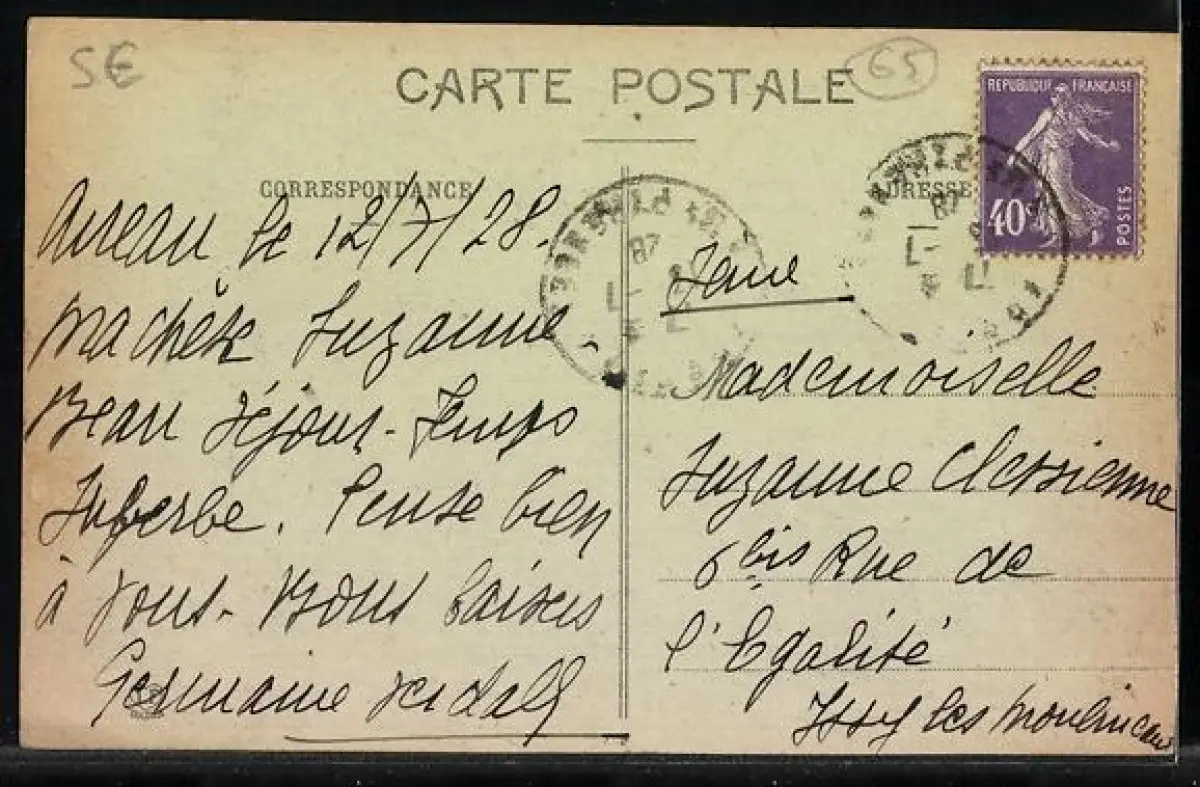 SE
65
CARTE POSTALE
CORRESPONDANCE
ADRESSE
REPUBLIQUE FRANÇAISE
40c
POSTES
le 12/7/28.
Ma chère Suzanne.
Beau séjour. Temps
Superbe. Pense bien
à vous. Bons baisers
Germaine
Mademoiselle
Suzanne
6 bis Rue de
l'Egalité
Issy les Moulineaux